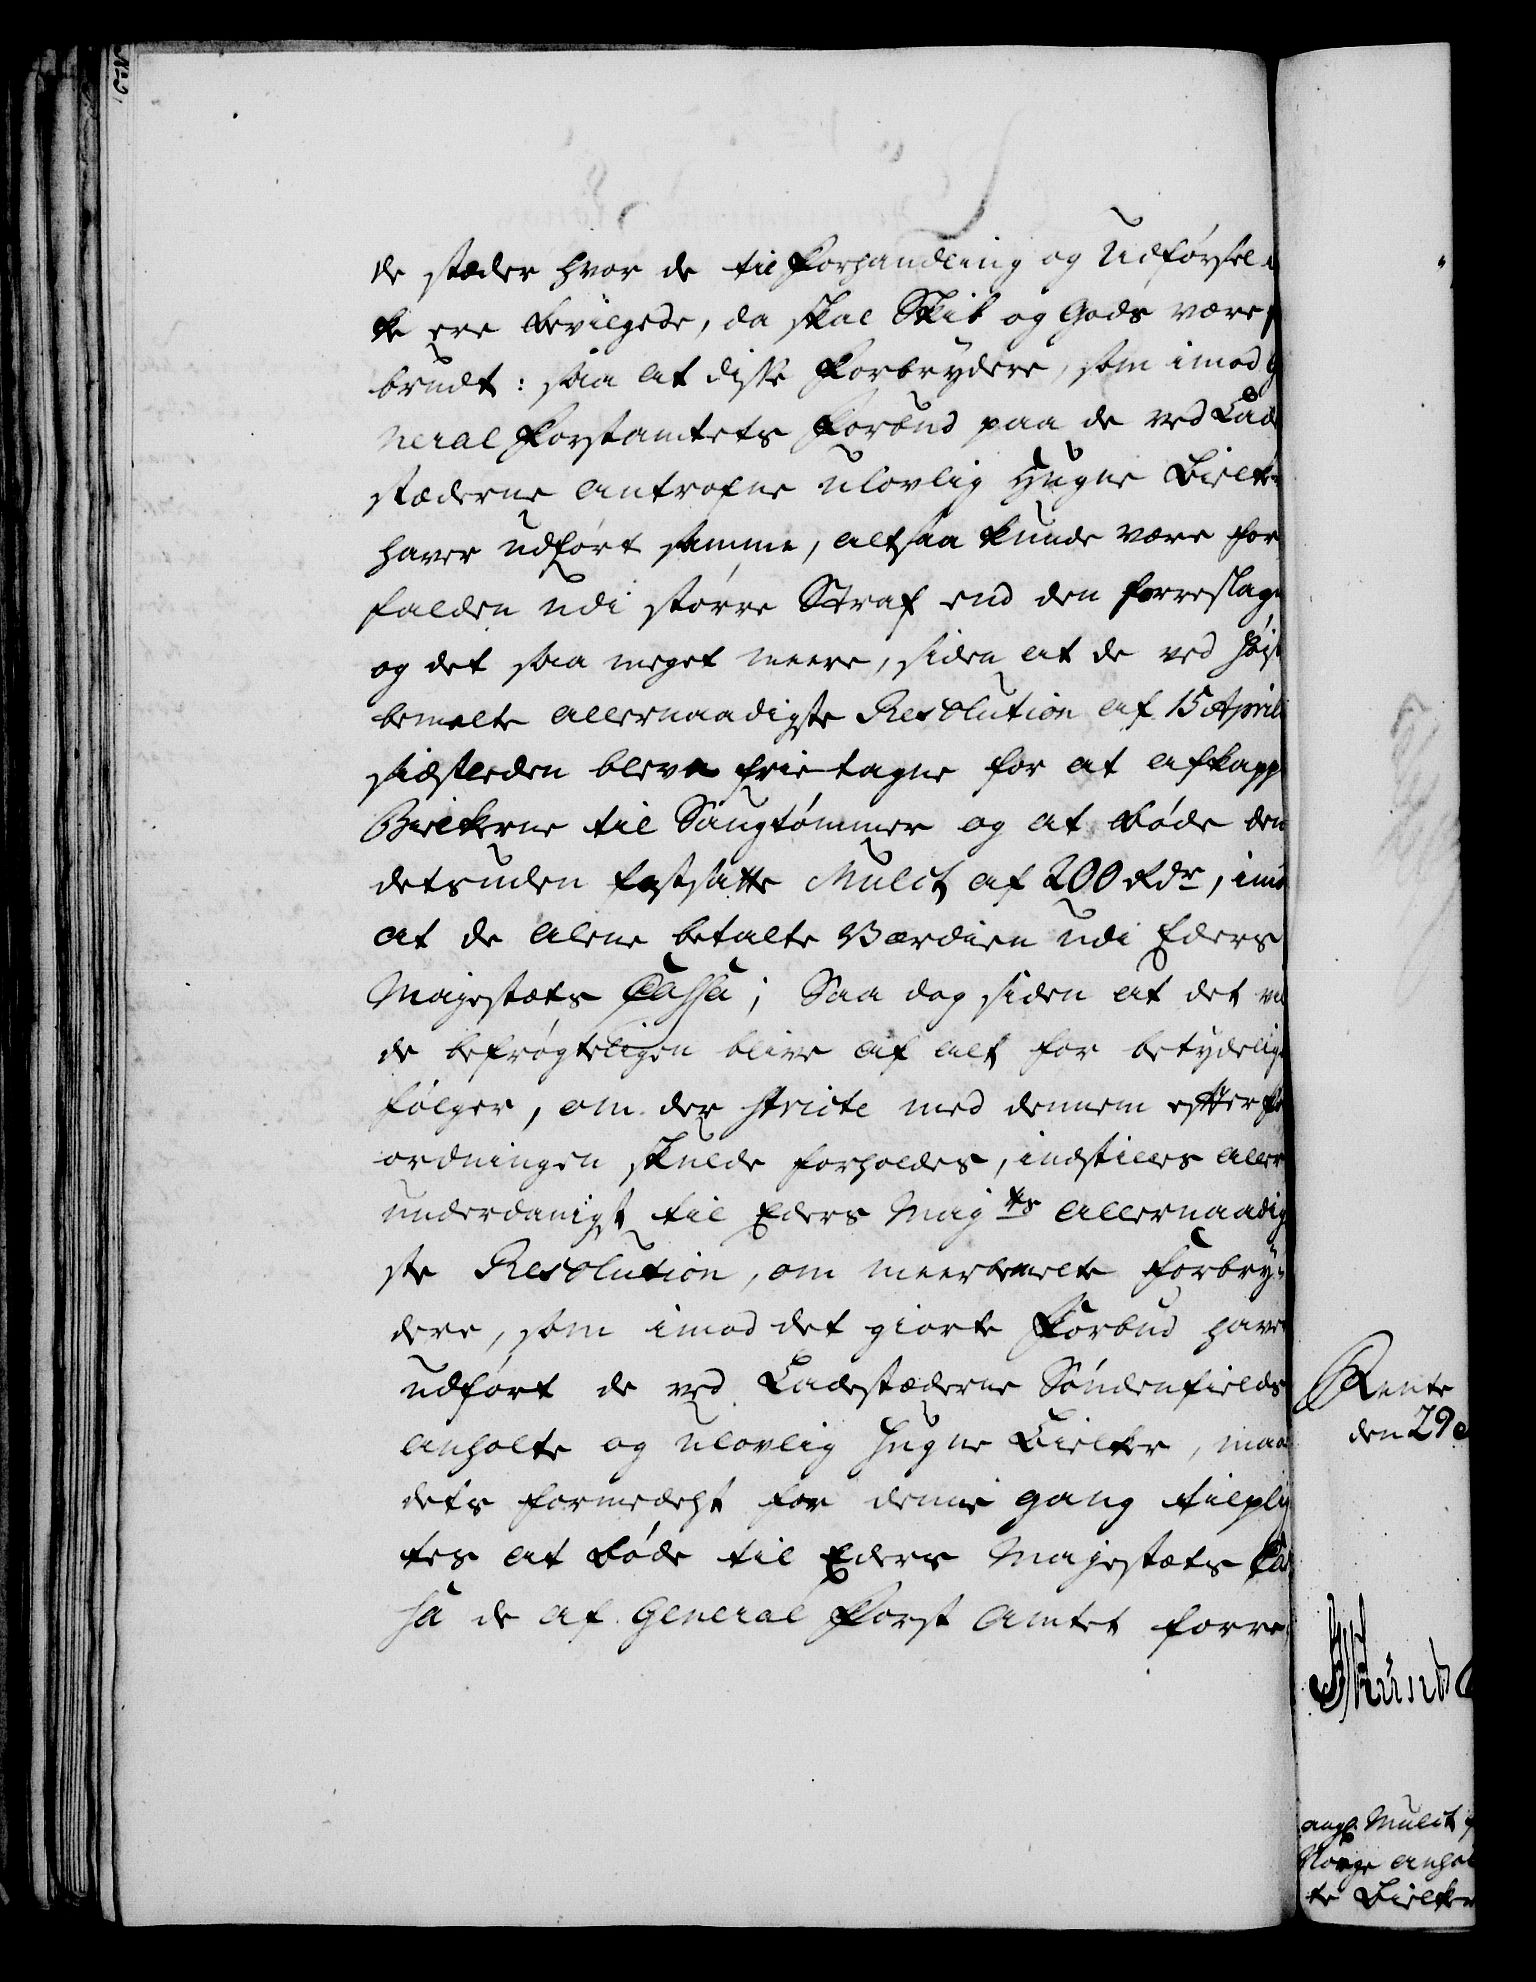 de stæder hvor de til Forhandling og Udførsel
ke ere bevilgede, da skal Skib og Gods være
brudt: saa at disse Forbrydere, som imod
neral Forstamtets Forbud paa de ved Lade
stæderne antrofne ulovlig hugne Bielker
haver udført samme, altsaa kunde være for
falden udi større Straf end den forreslagne
og det saa meget meere, siden at de ved høist
bemelte allernaadigste Resolution af 15 April
sidstleden bleve frietagne for at afkappe
Bielkerne til Saugtømmer og at bøde den
desuden fastsatte Mulct af 200 Rdr, imod
at de alene betalte Værdien udi Eders
Majestæts Cassa; Saa dog siden at det vil
de befrøgteligen blive af alt for betydelige
følger, om der stricte med dennem efter For
ordningen skulde forholdes, indstilles aller
underdanigst til Eders Maj ts allernaadig
ste Resolution, om meerbemelte Forbrÿ-
dere, som imod det giorte Forbud haver
udført de ved Ladestæderne Søndenfields
anholte og ulovlig hugne Bielker, maa
dets formedelst for denne gang tilplig
tes at bøde til Eders Majestæts Cas
sa de af General Forst Amtet forre
Rente
den 29
ang: Mulct
Norge anhol
te Bielker